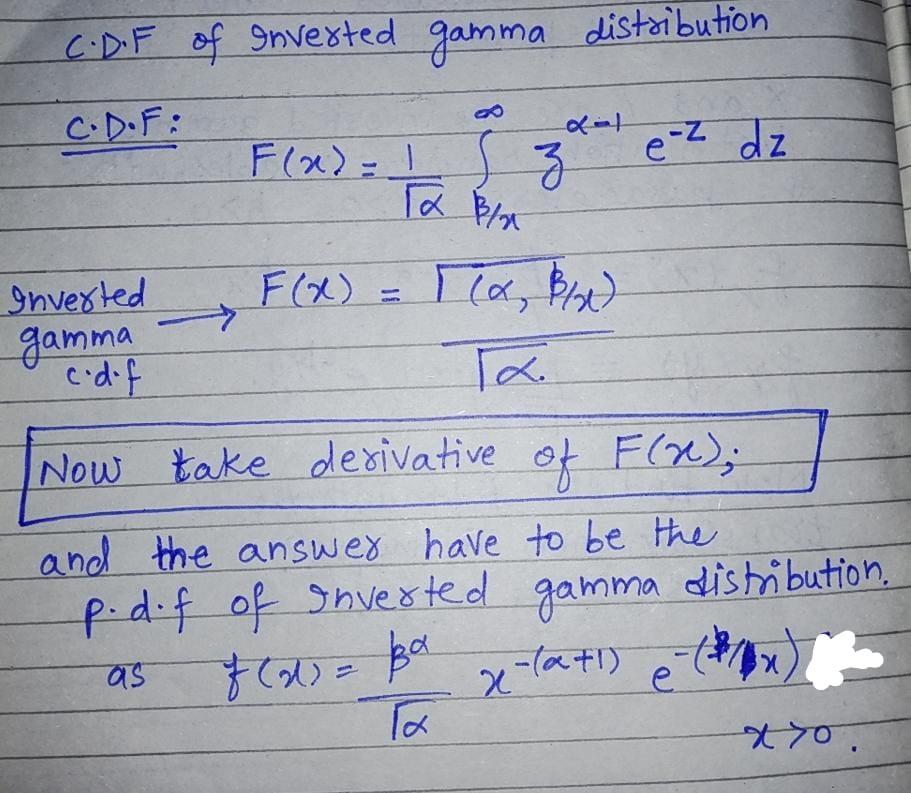 C.D.F of Inverted gamma distribution
C.D.F:
F(x) = 1/Γα ∫_{β/x}^{∞} z^{α-1} e^{-z} dz
Inverted gamma c.d.f → F(x) = Γ(α, β/x) / Γα.
Now take derivative of F(x);
and the answer have to be the
p.d.f of Inverted gamma distribution.
as f(x) = β^α/Γα x^{-(α+1)} e^{-(β/x)}
x > 0.